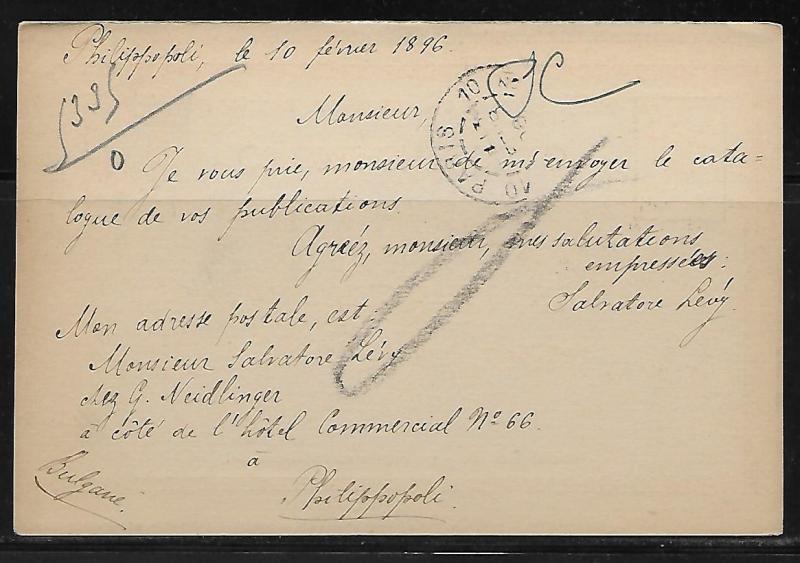 Philippopoli, le 10 février 1896.
533
Monsieur,
PARIS 10
Je vous prie, monsieur de m'envoyer le cata-
logue de vos publications.
Agréez, monsieur, mes salutations
empressées.
Salvatore Lévy.
Mon adresse postale, est:
Monsieur Salvatore Lévy
chez G. Neidlinger
à côté de l'hôtel Commercial Nº 66.
à
Philippopoli.
Bulgarie.